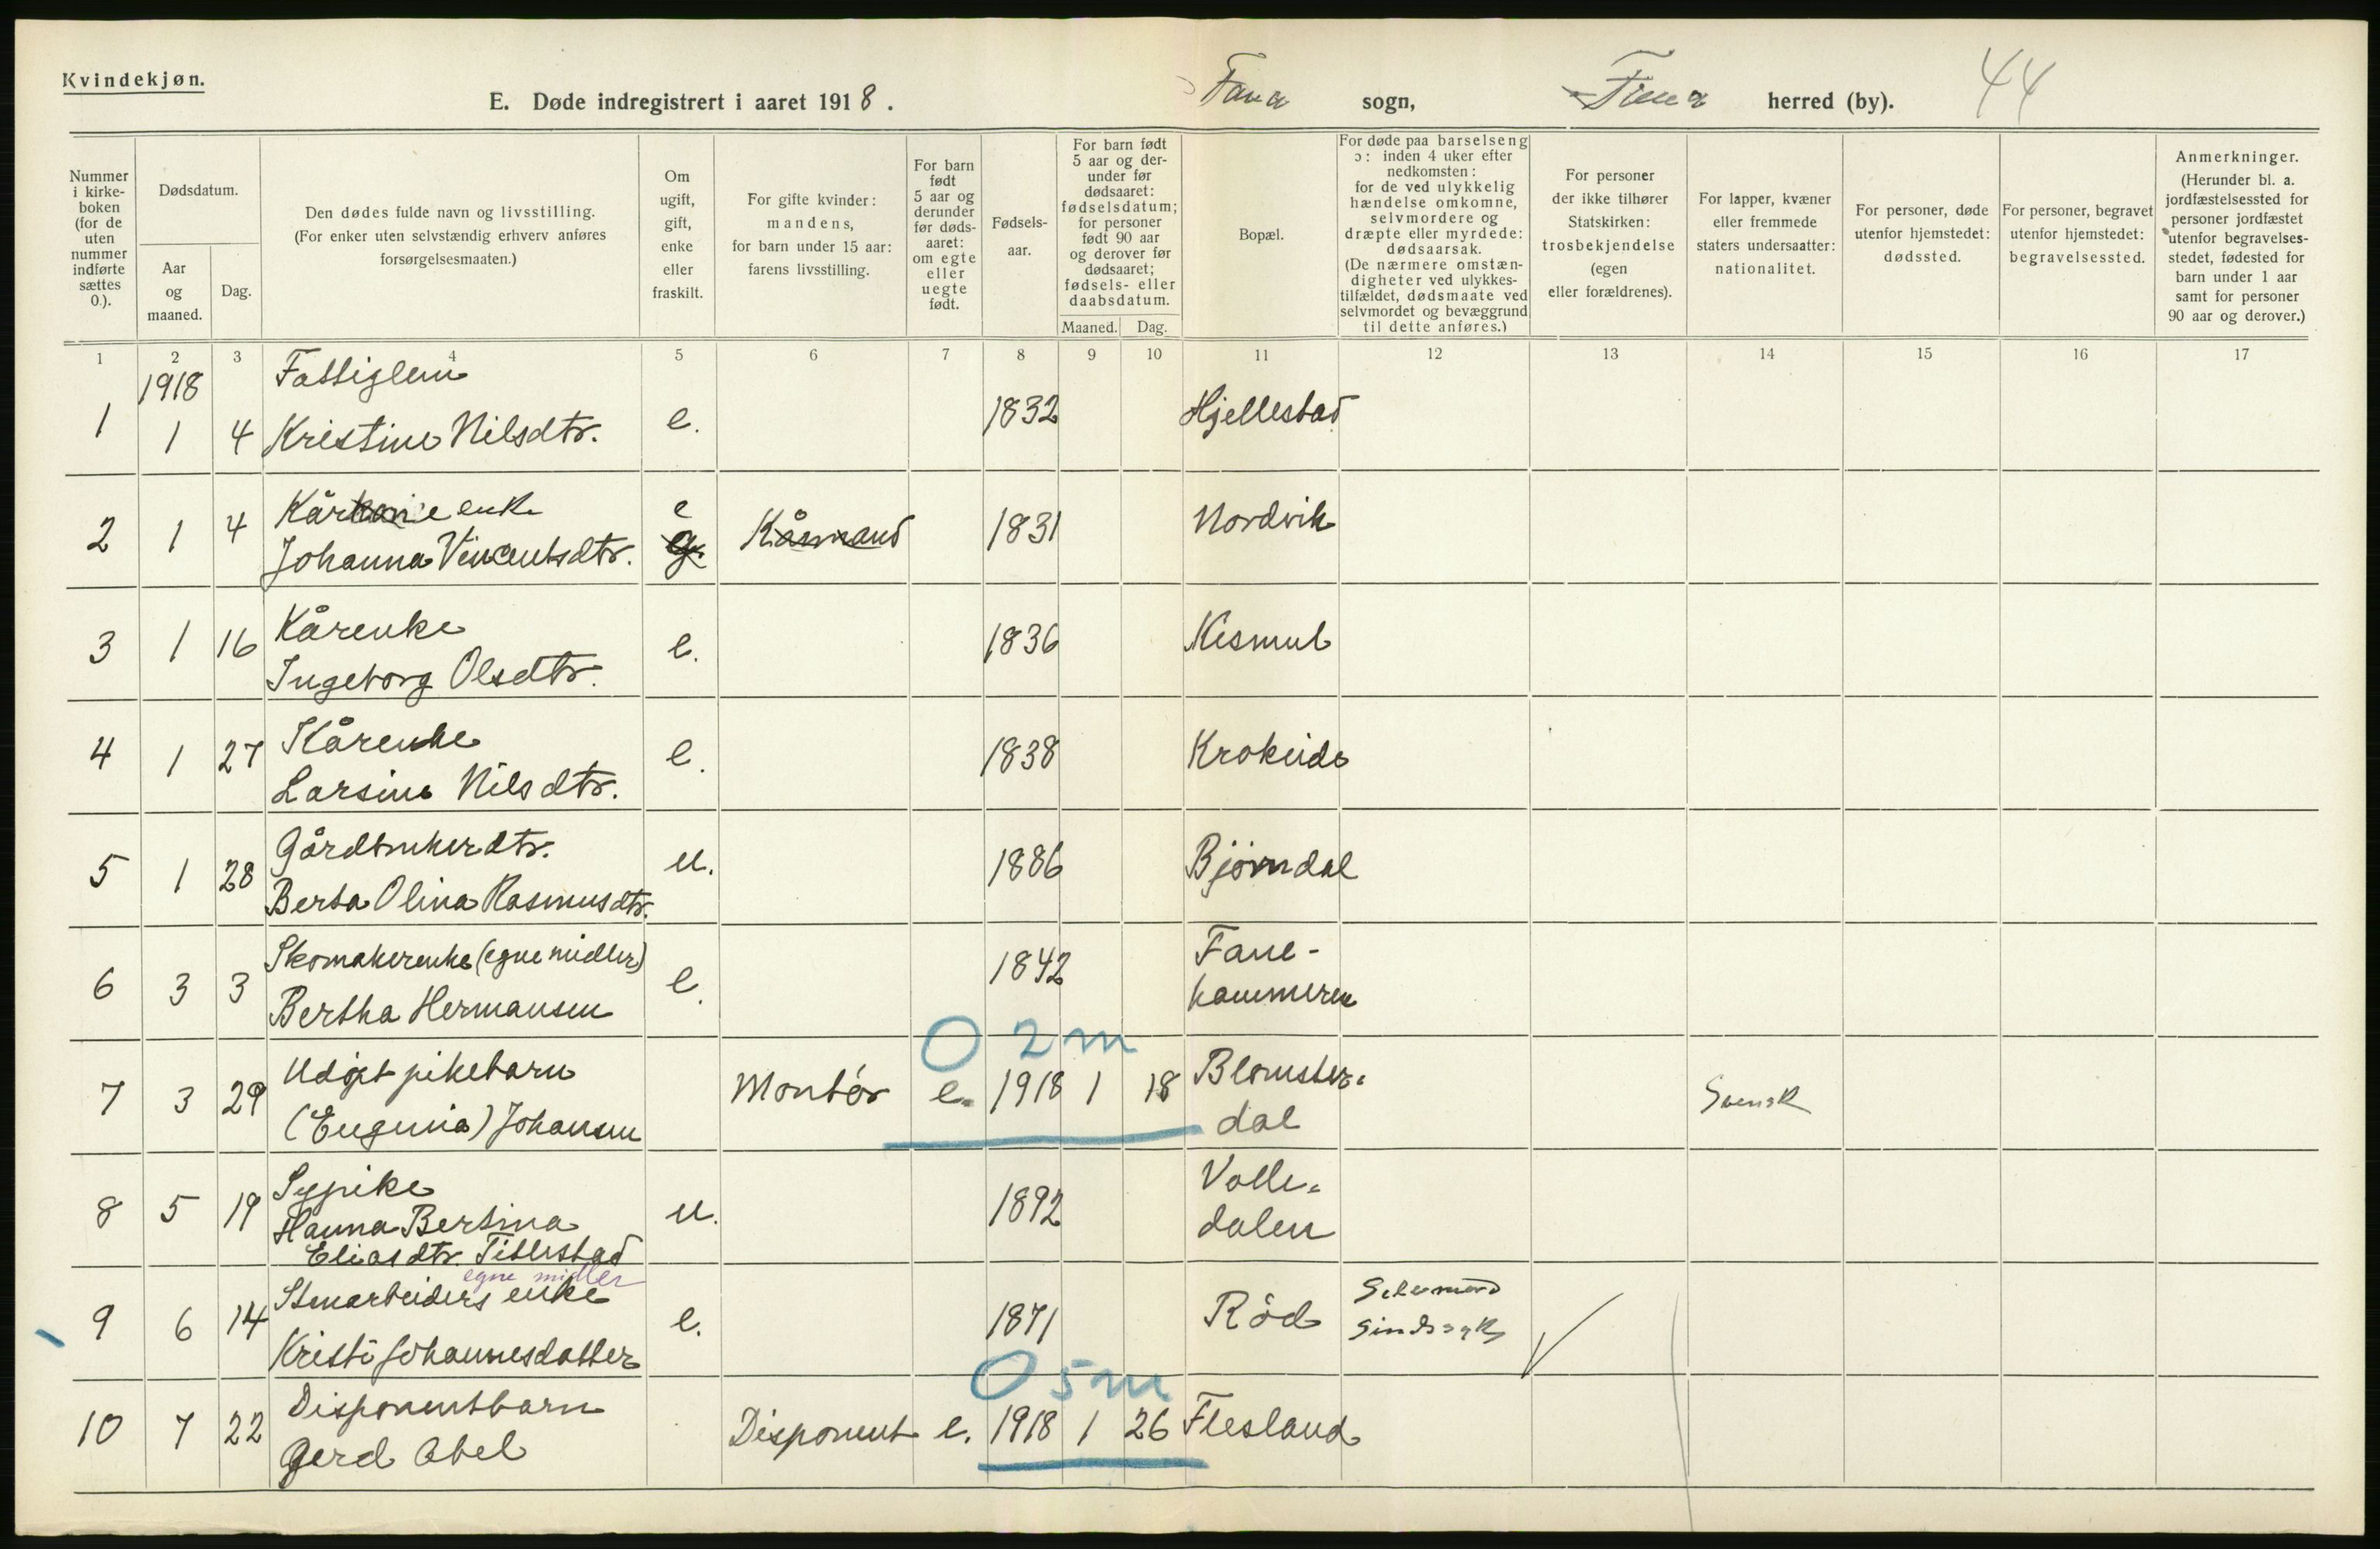 Kvindekjøn.
E. Døde indregistrert i aaret 1918.
Fana sogn, Fana herred (by). 44
Nummer i kirkeboken (for de uten nummer indførte sættes 0.).
Dødsdatum.
Aar og maaned.
Dag.
Den dødes fulde navn og livsstilling.
(For enker uten selvstændig erhverv anføres forsørgelsesmaaten.)
Om ugift, gift, enke eller fraskilt.
For gifte kvinder: mandens, for barn under 15 aar: farens livsstilling.
For barn født 5 aar og derunder før dødsaaret: om egte eller uegte født.
Fødselsaar.
For barn født 5 aar og derunder før dødsaaret: fødselsdatum; for personer født 90 aar og derover før dødsaaret; fødsels- eller daabsdatum.
Maaned. Dag.
Bopæl.
For døde paa barselseng ɔ: inden 4 uker efter nedkomsten: for de ved ulykkelig hændelse omkomne, selvmordere og dræpte eller myrdede: dødsaarsak. (De nærmere omstændigheter ved ulykkestilfældet, dødsmaate ved selvmordet og bevæggrund til dette anføres.)
For personer der ikke tilhører Statskirken: trosbekjendelse (egen eller forældrenes).
For lapper, kvæner eller fremmede staters undersaatter: nationalitet.
For personer, døde utenfor hjemstedet: dødssted.
For personer, begravet utenfor hjemstedet: begravelsessted.
Anmerkninger. (Herunder bl. a. jordfæstelsessted for personer jordfæstet utenfor begravelsesstedet, fødested for barn under 1 aar samt for personer 90 aar og derover.)
1 2 3 4 5 6 7 8 9 10 11 12 13 14 15 16 17
1918 Fattiglem
1 1 4 Kristine Nilsdtr. e. 1832 Hjellestad
Kår enke e
2 1 4 Johanna Vincentsdtr. g. Kårmand 1831 Nordvik
Kårenke
3 1 16 Ingeborg Olsdtr. e. 1836 Kismul
Kårenke
4 1 27 Larsine Nilsdtr. e. 1838 Krokeide
Gårdbrukerdtr.
5 1 28 Berta Olina Rasmusdtr. u. 1886 Bjørndal
Skomakerenke (egne midler) Fane-
6 3 3 Bertha Hermansen e. 1842 hammeren
0 2 m
Udøpt pikebarn Blomster-
7 3 29 (Eugenia) Johansen Montör e. 1918 1 18 dal Svensk
Sypike Valle-
8 5 19 Hanna Bertina u. 1892 dalen
Eliasdtr. Titlestad
egne midler
Stenarbeiders enke Selvmord
9 6 14 Kristi Johannesdatter e. 1871 Råd sindssyk
0 5 m
Disponentbarn
10 7 22 Gerd Abel Disponent e. 1918 1 26 Flesland